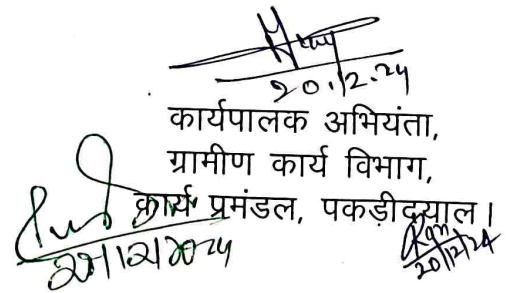 20.12.24
कार्यपालक अभियंता,
ग्रामीण कार्य विभाग,
कार्य प्रमंडल, पकड़ीदयाल।
20/12/2024
20/12/24